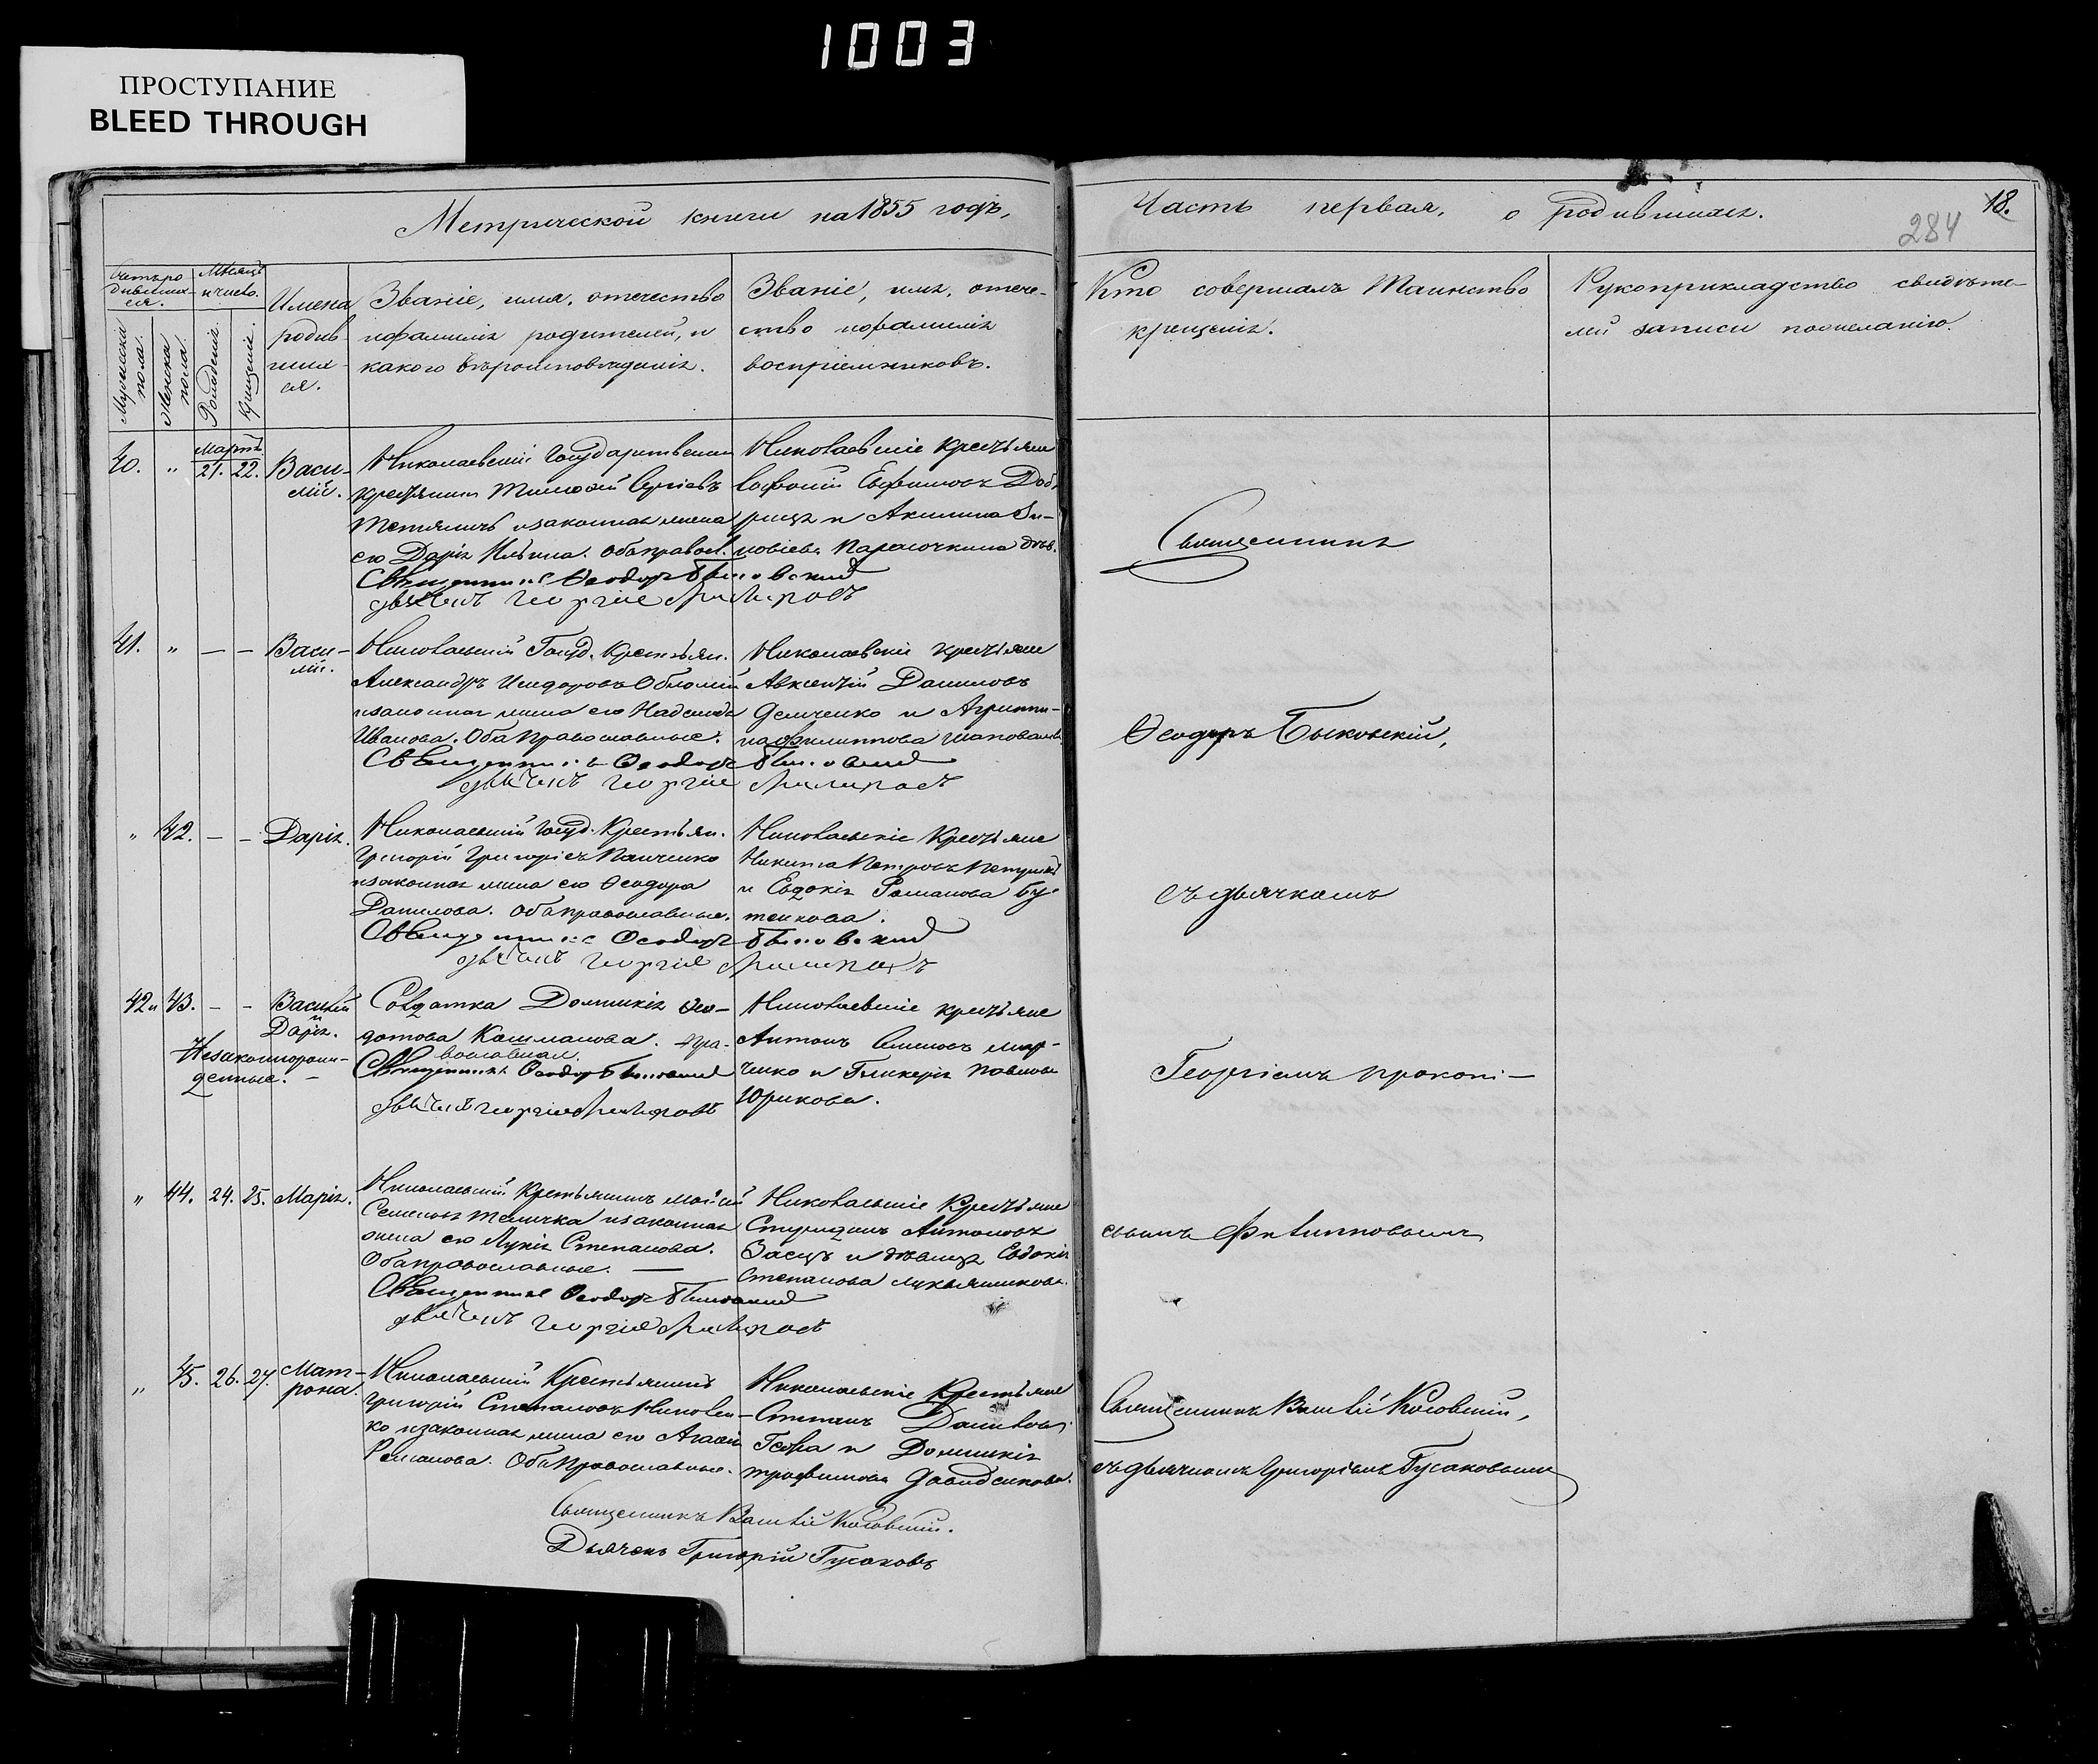 1003
ПРОСТУПАНИЕ
BLEED THROUGH
Метрической книги на 1855 годъ,
Часть первая, о родившихся.
18.
284
Счетъ ро
дившихъ-
ся.
Мѣсяцъ
и число.
Мужеска
пола.
Женска
пола.
Рожденія.
Крещенія.
Имена
родив-
шихъ-
ся.
Званіе, имя, отчество
и фамилія родителей, и
какого вѣроисповѣданія.
Званіе, имя, отече-
ство и фамилія
воспріемниковъ.
Кто совершалъ Таинство
крещенія.
Рукоприкладство свидѣте-
лей записи по желанію.
40. " Мартъ 21. 22. Васи-
лій.
Николаевскій Государственный
крестьянинъ Тимофей Сергіевъ
и законная жена
его Дарія Ильина. Оба правосл.
Священникъ Ѳеодоръ Быковский
дьячекъ Георгие
Николаевскіе крестьяне
и Акилина Зи-
новіева
Священникъ
41. " — — Васи-
лій.
Николаевскій Госуд. Крестьян.
Александръ Исидоровъ
и законная жена его Надежда
Иванова. Оба православные.
Священникъ Ѳеодоръ Быковский
дьячекъ Георгие
Николаевскіе крестьяне
Авксентій Даниловъ
Демченко и Агриппи-
на Филиппова Шаповалова
Ѳеодоръ Быковскій,
" 42. — — Дарія.
Николаевскій Госуд. Крестьян.
Григорій Григоріевъ Панченко
и законная жена его Ѳеодора
Данилова. Оба православные.
Священникъ Ѳеодоръ Быковский
дьячекъ Георгие
Николаевскіе Крестьяне
Никита Петровъ
и Евдокія Романова Бу-
тенкова.
съ дьячкомъ
42 и 43. — — Василій
и
Дарія.
Незаконнорож-
денные. —
Солдатка Домникія Ѳео-
дотова Кошманова. Пра-
вославная.
Священникъ Ѳеодоръ Быковский
дьячекъ Георгие
Николаевскіе крестьяне
Антонъ
и Гликерія Павлова
Юрикова.
Георгіемъ Прокопі-
" 44. 24. 25. Марія.
Николаевскій Крестьянинъ Моисей
Семеновъ Теличка и законная
жена его Лукія Степанова.
Оба православные. —
Священникъ Ѳеодоръ Быковский
дьячекъ Георгие
Николаевскіе Крестьяне
Спиридонъ Антоновъ
Заецъ и дѣвица Евдокія
Степанова Лукьянчикова.
евымъ Филипповымъ
" 45. 26. 27. Мат-
рона.
Николаевскій Крестьянинъ
Григорій Степановъ
ко и законная жена его Агафія
Романова. Оба Православные.
Николаевскіе Крестьяне
Степанъ Даниловъ
и Домникія
Трофимова Давиденкова.
Священникъ Василій Косовскій,
съ дьячкомъ Григоріемъ Гусаковымъ
Священникъ Василій Косовскій.
Дьячекъ Григорій Гусаковъ